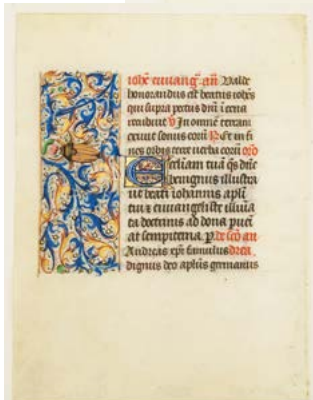 iohē euuanḡ. an̄ Valde
honorandus est beatus iohēs
qui supra pectus dn̄i ī cena
recubuit V In omnē terram
exiuit sonus eorū R Et in fi
nes orbis terre uerba eorū oro
Ecclīam tuā qs dn̄e
benignus illustra
ut beati iohannis apl̄i
tui et euuangeliste illuīa
ta doctrinis ad dona puen̄i
at sempiterna. P. de sc̄o an
Andreas xp̄i famulus drea
dignus deo apl̄us germanus